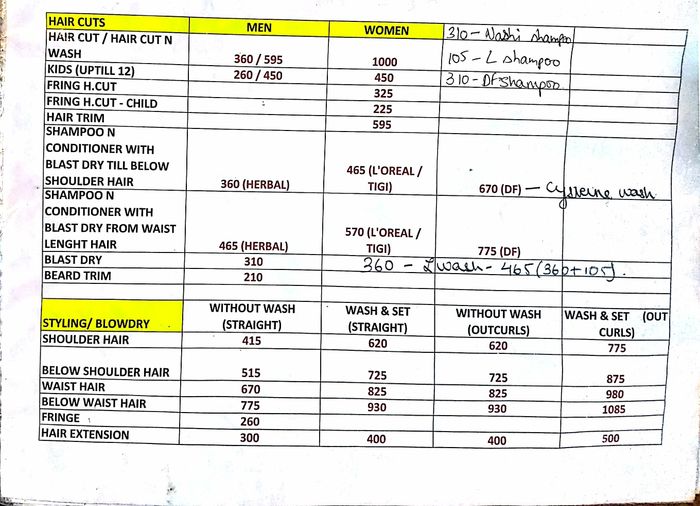 HAIR CUTS MEN WOMEN 310 - Washi shampoo
HAIR CUT / HAIR CUT N
WASH 360 / 595 1000 105 - L shampoo
KIDS (UPTILL 12) 260 / 450 450 310 - DF shampoo
FRING H.CUT 325
FRING H.CUT - CHILD 225
HAIR TRIM 595
SHAMPOO N
CONDITIONER WITH
BLAST DRY TILL BELOW 465 (L'OREAL /
SHOULDER HAIR 360 (HERBAL) TIGI) 670 (DF) - Cysteine wash
SHAMPOO N
CONDITIONER WITH
BLAST DRY FROM WAIST 570 (L'OREAL /
LENGHT HAIR 465 (HERBAL) TIGI) 775 (DF)
BLAST DRY 310 360 - L wash - 465 (360+105).
BEARD TRIM 210
WITHOUT WASH WASH & SET WITHOUT WASH WASH & SET (OUT
STYLING/ BLOWDRY (STRAIGHT) (STRAIGHT) (OUTCURLS) CURLS)
SHOULDER HAIR 415 620 620 775
BELOW SHOULDER HAIR 515 725 725 875
WAIST HAIR 670 825 825 980
BELOW WAIST HAIR 775 930 930 1085
FRINGE 260
HAIR EXTENSION 300 400 400 500